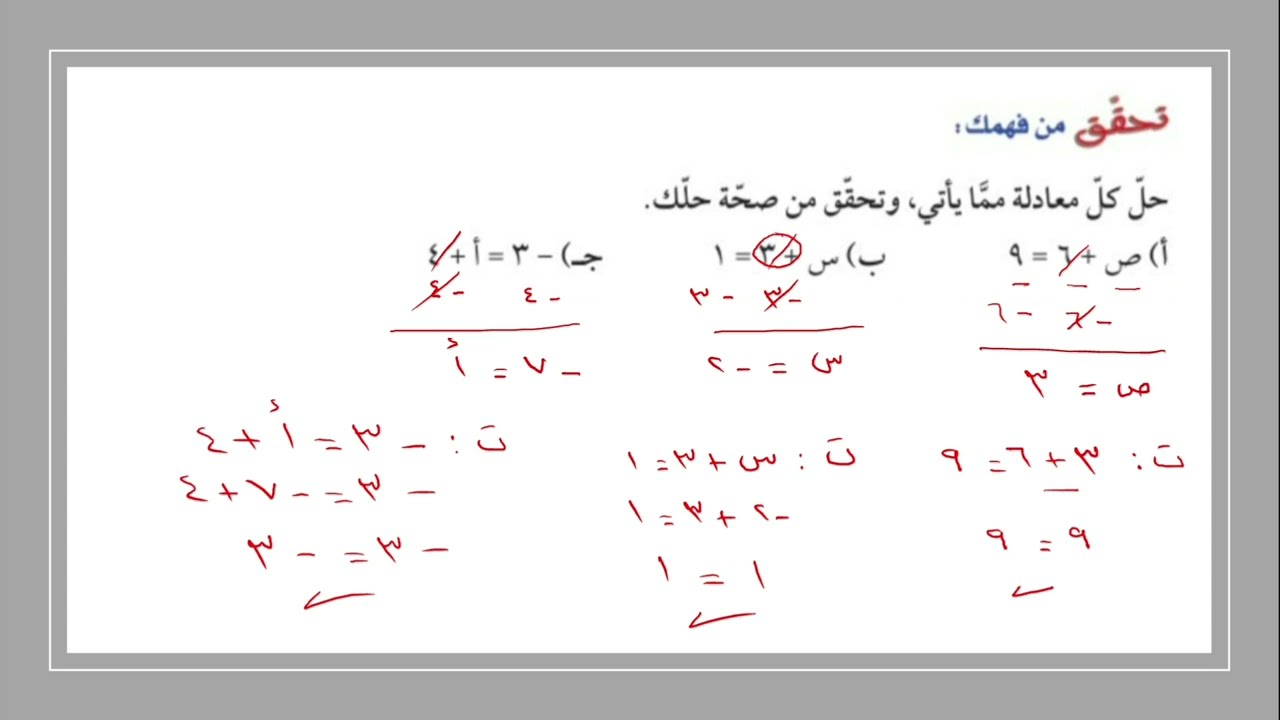 تحقّق من فهمك:
حلّ كلّ معادلة ممَّا يأتي، وتحقّق من صحّة حلّك.
أ) ص + ٦ = ٩
ب) س + ٣ = ١
جـ) - ٣ = أ + ٤
- ٦ - ٦
- ٣ - ٣
- ٤ - ٤
ص = ٣
س = - ٢
- ٧ = أ
ت : ٣ + ٦ = ٩
٩ = ٩
ت : س + ٣ = ١
- ٢ + ٣ = ١
١ = ١
ت : - ٣ = أ + ٤
- ٣ = - ٧ + ٤
- ٣ = - ٣